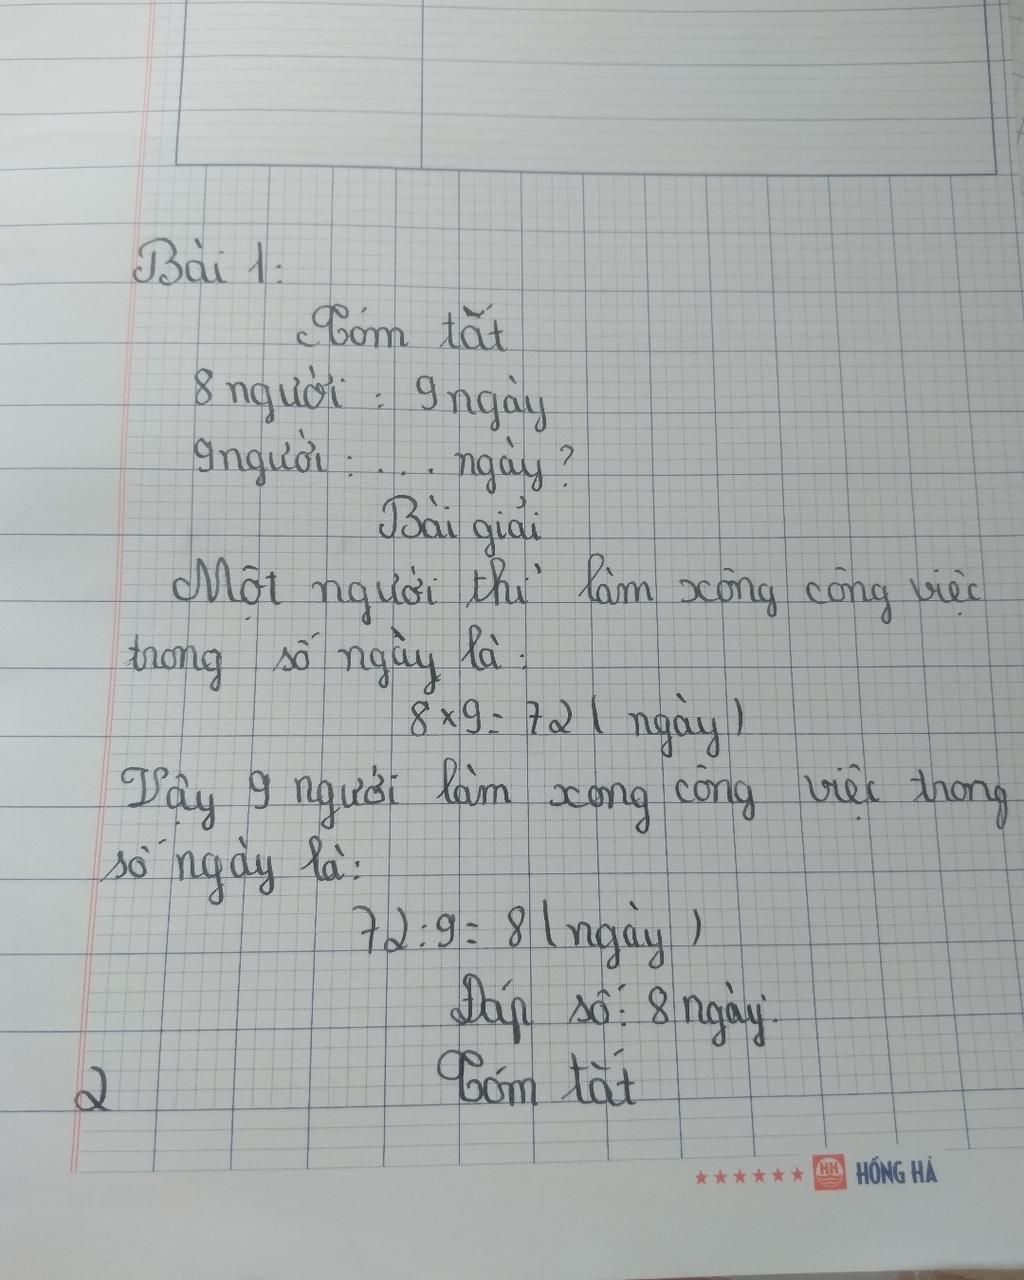 Bài 1:
Tóm tắt
8 người : 9 ngày
9 người : . . . . ngày ?
Bài giải
Một người thì làm xông công việc
trong số ngày là :
8 x 9 = 72 ( ngày )
Vậy 9 người làm xong công việc trong
số ngày là :
72 : 9 = 8 ( ngày )
Đáp số : 8 ngày.
2 Tóm tắt
HH HỒNG HÀ